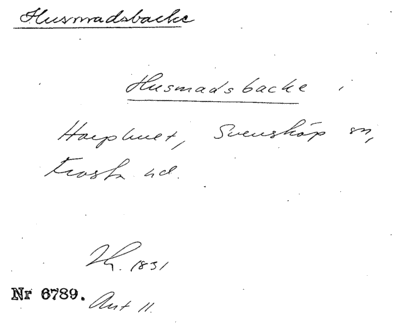 Husmadsbacke
Husmadsbacke i
Svensköp sn,
Frosta hd.
1831
Nr 6789.
Ant 11.